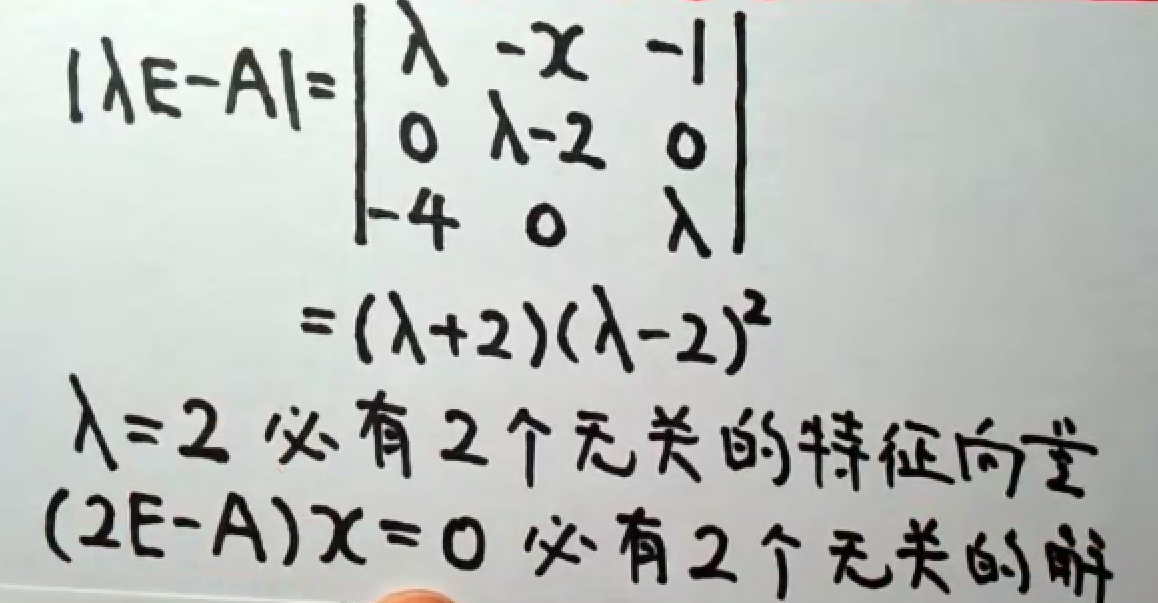 |λE-A|= | λ -x -1 |
| 0 λ-2 0 |
| -4 0 λ |
=(λ+2)(λ-2)²
λ=2 必有2个无关的特征向量
(2E-A)x=0 必有2个无关的解